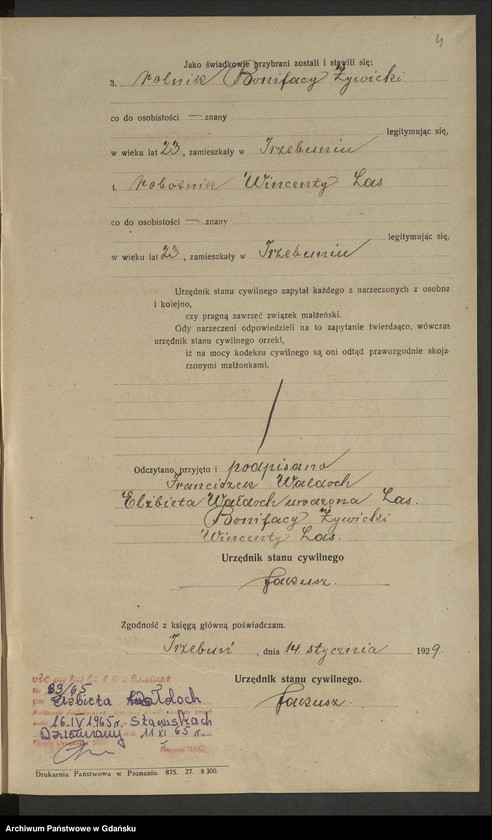 4
Jako świadkowie przybrani zostali i stawili się:
3. rolnik Bonifacy Żywicki
co do osobistości — znany
legitymując się,
w wieku lat 23, zamieszkały w Trzebuniu
4. robotnik Wincenty Las
co do osobistości — znany
legitymując się,
w wieku lat 23, zamieszkały w Trzebuniu
Urzędnik stanu cywilnego zapytał każdego z narzeczonych z osobna
i kolejno,
czy pragną zawrzeć związek małżeński.
Gdy narzeczeni odpowiedzieli na to zapytanie twierdząco, wówczas
urzędnik stanu cywilnego orzekł,
iż na mocy kodeksu cywilnego są oni odtąd prawozgodnie skoja-
rzonymi małżonkami.
Odczytano, przyjęto i podpisano
Franciszek Wałdoch
Elżbieta Wałdoch urodzona Las.
Bonifacy Żywicki
Wincenty Las.
Urzędnik stanu cywilnego
Jakusz.
Zgodność z księgą główną poświadczam.
Trzebuń, dnia 14 stycznia 1929.
Urzędnik stanu cywilnego.
Jakusz.
Nr 83/65
Elżbieta Wałdoch
16.IV 1965 r.
Dziemiany 11 XI 65 r.
Drukarnia Państwowa w Poznaniu. 875. 27. 8 300.
Archiwum Państwowe w Gdańsku